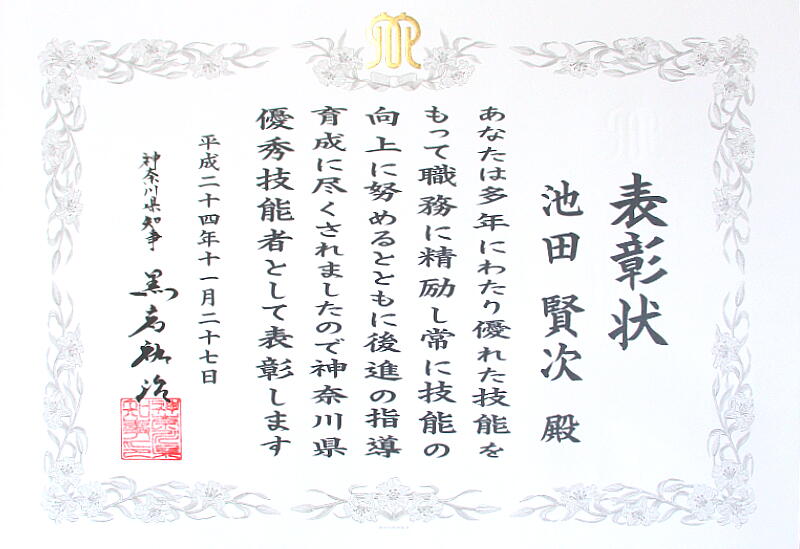 表彰状
池田賢次 殿
あなたは多年にわたり優れた技能を
もって職務に精励し常に技能の
向上に努めるとともに後進の指導
育成に尽くされましたので神奈川県
優秀技能者として表彰します
平成二十四年十一月二十七日
神奈川県知事 黒岩祐治